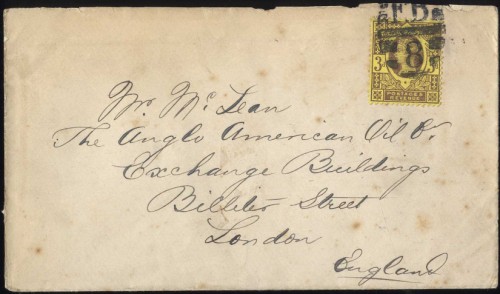 FB
8
3 D
POSTAGE &
REVENUE
Mr. McLean
The Anglo American Oil Co.
Exchange Buildings
Billiter Street
London
England